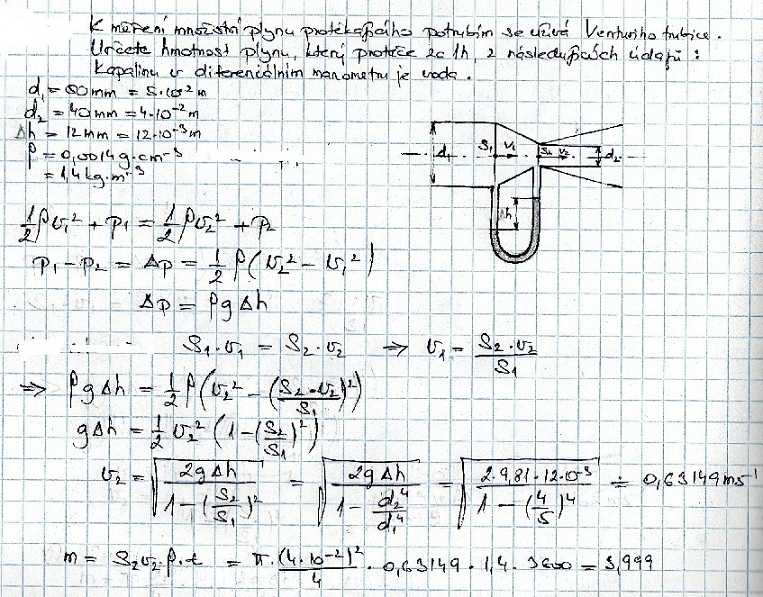 K měření množství plynu protékajícího potrubím se užívá Venturiho trubice.
Určete hmotnost plynu, který proteče za 1h, z následujících údajů:
Kapalinu v diferenciálním manometru je voda.
d₁ = 50mm = 5·10⁻² m
d₂ = 40mm = 4·10⁻² m
Δh = 12mm = 12·10⁻³ m
ρ = 0,0014 g·cm⁻³
= 1,4 kg·m⁻³
d₁ S₁ v₁ S₂ v₂ d₂
Δh
½ρv₁² + p₁ = ½ρv₂² + p₂
p₁ - p₂ = Δp = ½ρ(v₂² - v₁²)
Δp = ρgΔh
S₁·v₁ = S₂·v₂ ⇒ v₁ = S₂·v₂/S₁
⇒ ρgΔh = ½ρ(v₂² - (S₂·v₂/S₁)²)
gΔh = ½v₂²(1-(S₂/S₁)²)
v₂ = √(2gΔh/(1-(S₂/S₁)²)) = √(2gΔh/(1-d₂⁴/d₁⁴)) = √(2·9,81·12·10⁻³/(1-(4/5)⁴)) ≐ 0,63149 ms⁻¹
m = S₂v₂·ρ·t = π·(4·10⁻²)²/4 · 0,63149 · 1,4 · 3600 = 3,999